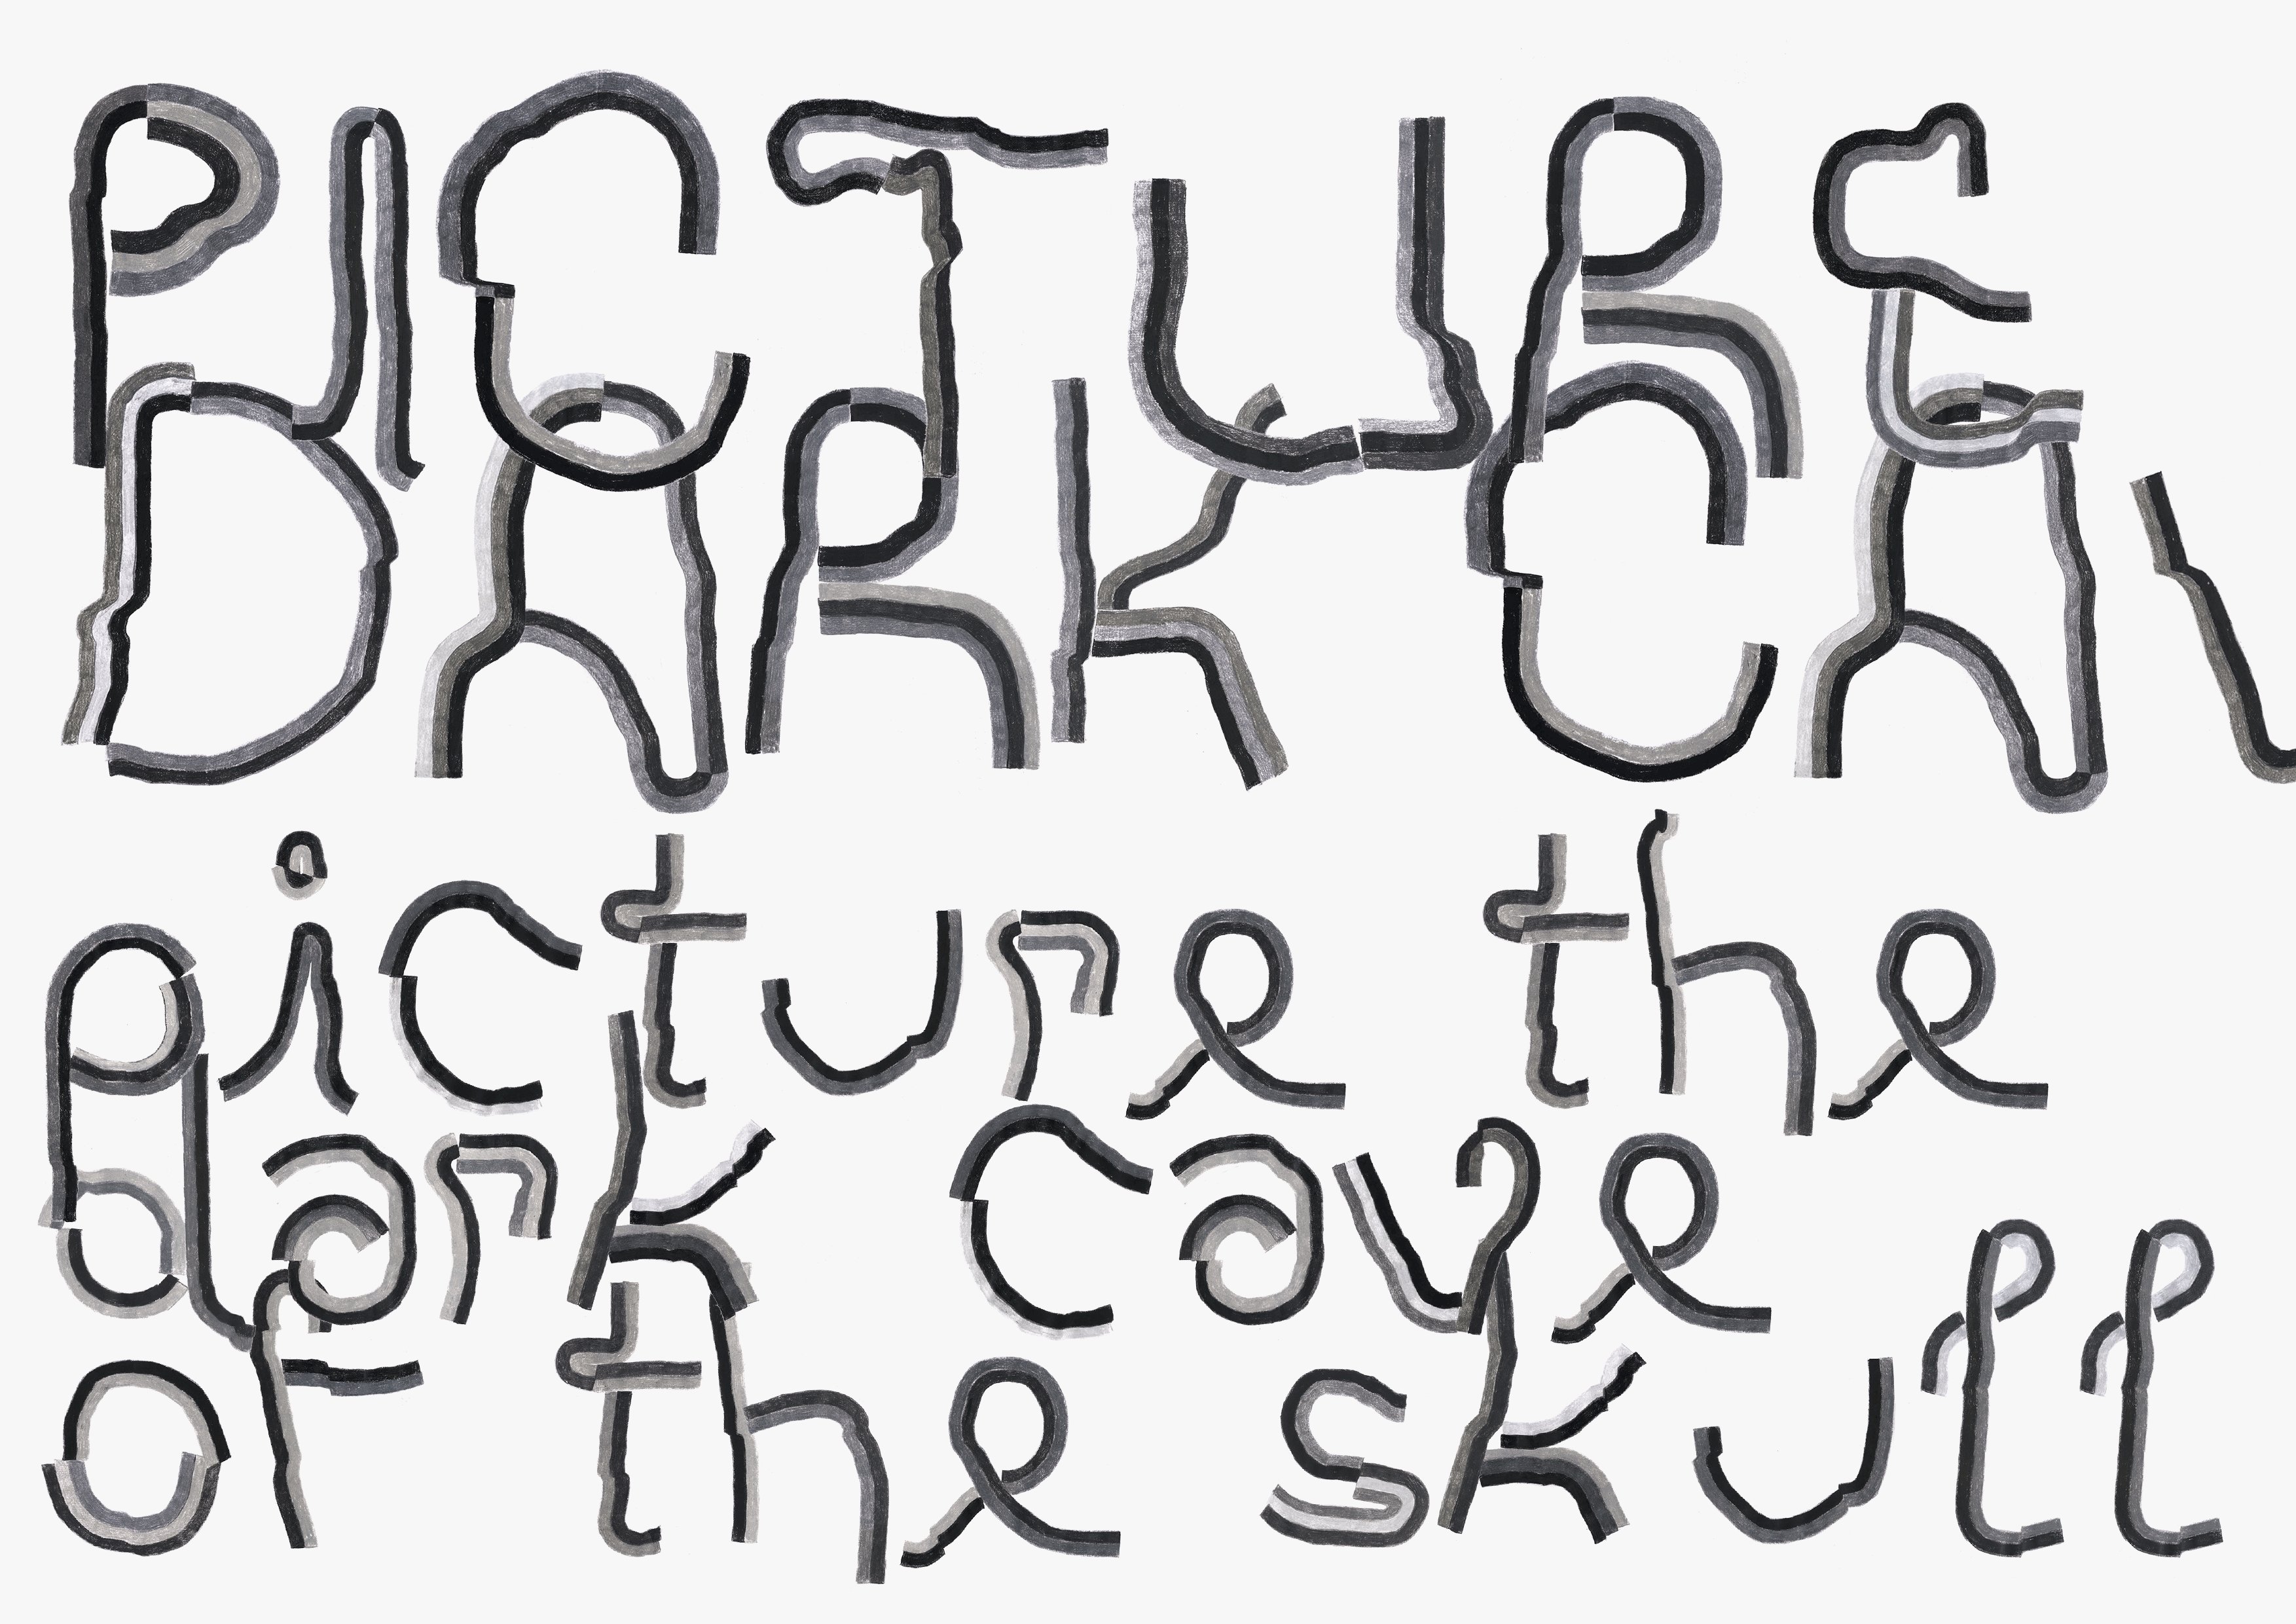 PICTURE
DARK CAV
picture the
dark cave
of the skull